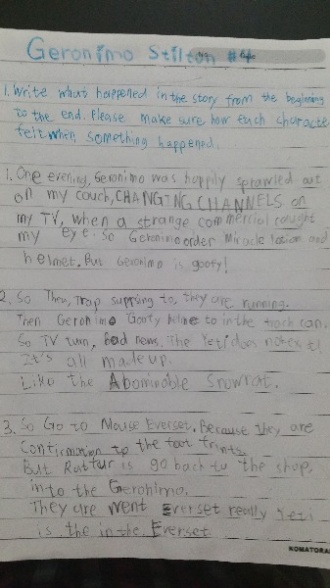 Geronimo Stilton #4
1. Write what happened in the story from the beginning
to the end. Please make sure how each characte
felt when something happened.
1. One evening, Geronimo was happily sprawled out
on my couch, CHANGING CHANNELS on
my TV, when a strange commercial caught
my eye. So Geronimo order Miracle lotion and
helmet. But Geronimo is goofy!
2. So Then, Trap supprsing to, they are running.
Then Geronimo Goofy helme to in the trach can.
So TV turn, bad news. The Yeti does not exist
It's all made up.
Like the Abominable Snowrat.
3. So Go to Mouse Everset. Because they are
to the foot prints
But Rattur is go back to the shop.
into the Geronimo.
They are went Everset really Yeti
is the in the Everset
KOMATORA